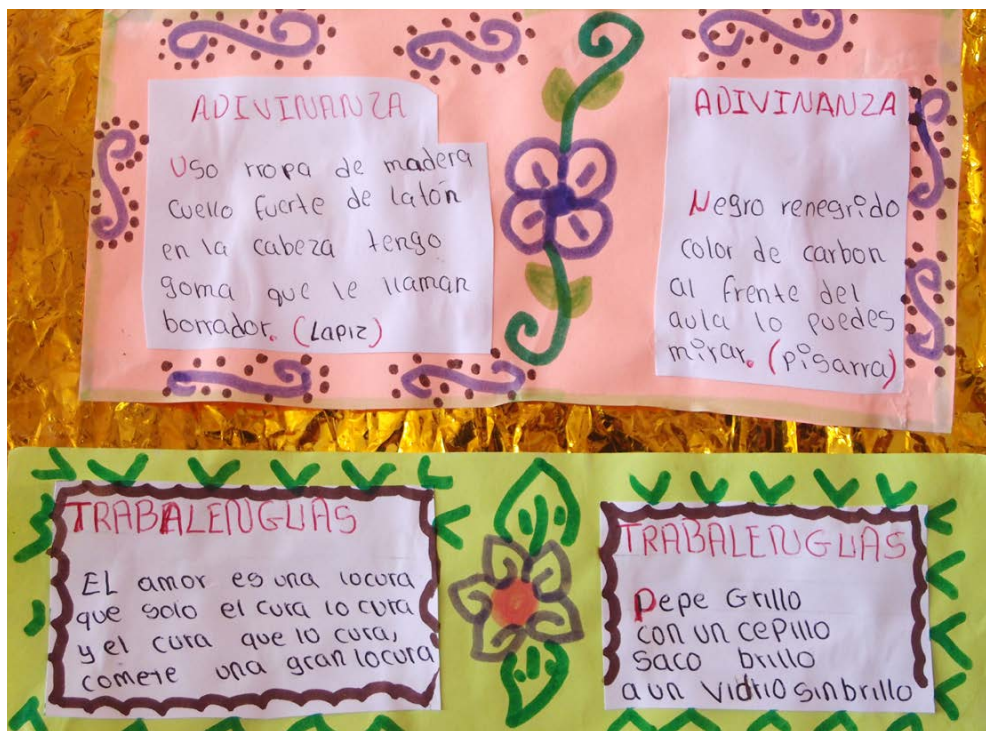 ADIVINANZA
Uso rropa de madera
cuello fuerte de latón
en la cabeza tengo
goma que le llaman
borrador. (Lapiz)
ADIVINANZA
Negro renegrido
color de carbon
al frente del
aula lo puedes
mirar. (pisarra)
TRABALENGUAS
EL amor es una locura
que solo el cura lo cura
y el cura que lo cura,
comete una gran locura
TRABALENGUAS
Pepe Grillo
con un cepillo
saco brillo
a un vidrio sin brillo